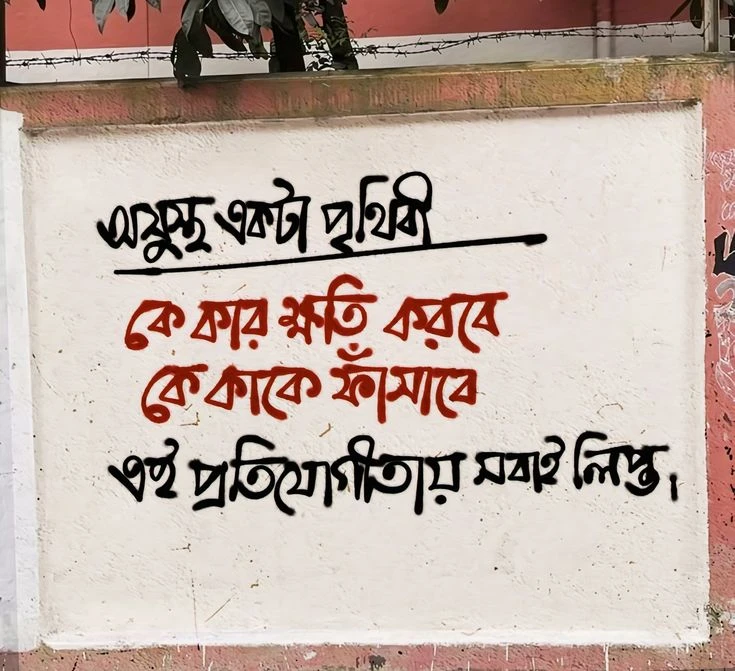 অসুস্থ একটা পৃথিবী
কে কার ক্ষতি করবে
কে কাকে ফাঁসাবে
এই প্রতিযোগীতায় সবাই লিপ্ত।